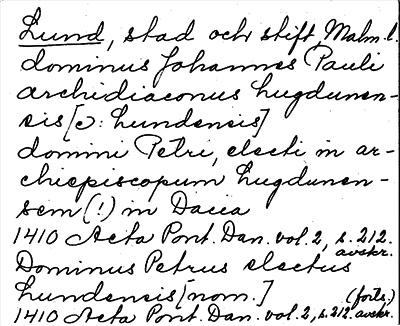 Lund, stad och stift, Malm.l.
dominus Johannes Pauli
archidiaconus Lugdunen-
sis [ɔ: Lundensis]
domini Petri, electi in ar-
chiepiscopum Lugdunen-
sem (!) in Dacia
1410 Acta Pont. Dan. vol. 2, s. 212.
avskr.
Dominus Petrus electus
Lundensis [nom.]
(forts.)
1410 Acta Pont. Dan. vol. 2, s. 212. avskr.